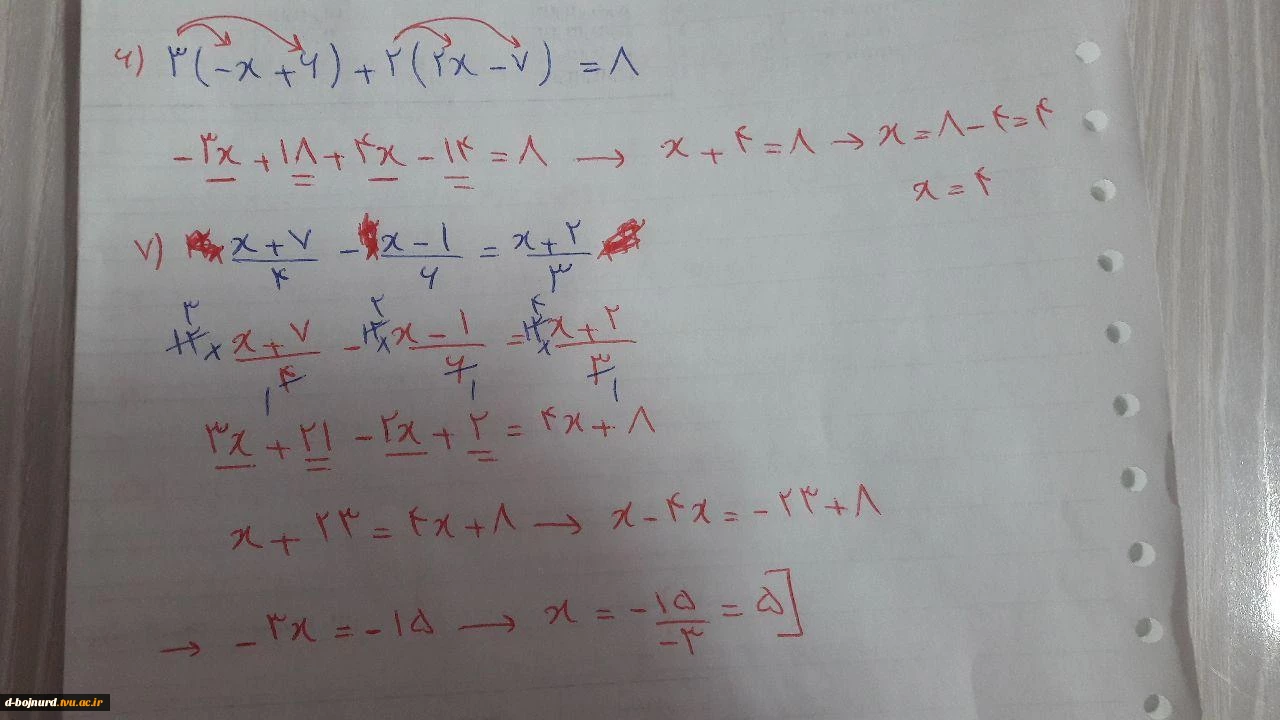 ۶) ۳(-x+۶)+۲(۲x-۷)=۸
-۳x+۱۸+۴x-۱۴=۸ → x+۴=۸ → x=۸-۴=۴
x=۴
۷) x+۷/۴ - x-۱/۶ = x+۲/۳
۱۲× x+۷/۴ - ۱۲× x-۱/۶ = ۱۲× x+۲/۳
۳x+۲۱-۲x+۲=۴x+۸
x+۲۳=۴x+۸ → x-۴x=-۲۳+۸
→ -۳x=-۱۵ → x=-۱۵/-۳=۵]
d-bojnurd.tvu.ac.ir